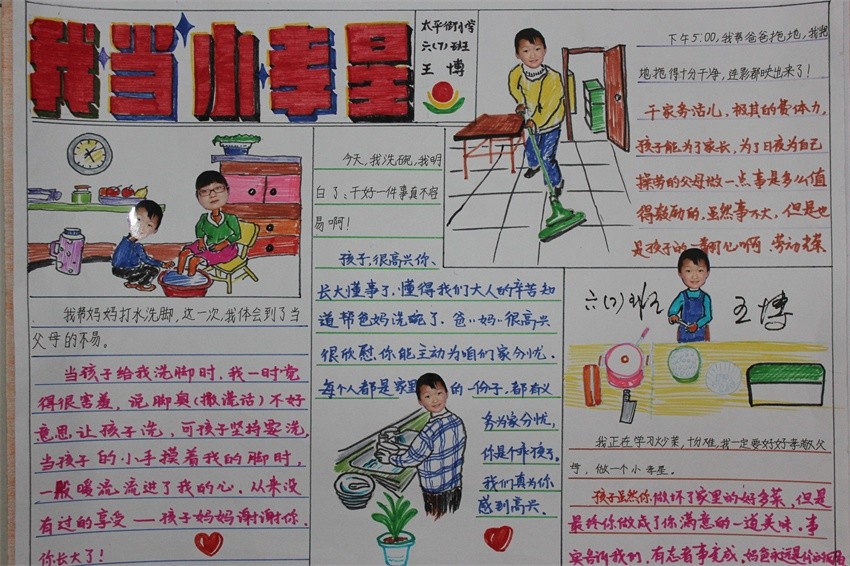 我当小孝星
太平街小学
六(7)班
王 博
下午5:00,我帮爸爸拖地,我把
地拖得十分干净,连影都映出来了!
干家务活儿,极其的费体力,
孩子能为了家长,为了日夜为自己
操劳的父母做一点事是多么值
得鼓励的,虽然事不大,但是也
是孩子的一番心啊,劳动光荣
今天,我洗碗,我明
白了:干好一件事真不容
易啊!
孩子,很高兴你、
长大懂事了,懂得我们大人的辛苦知
道帮爸妈洗碗了.爸''妈''很高兴
很欣慰你能主动为咱们家分忧.
每个人都是家里 的一份子,都有义
务为家分忧,
你是个乖孩子。
我们真为你
感到高兴.
我帮妈妈打水洗脚,这一次,我体会到了当
父母的不易。
当孩子给我洗脚时,我一时觉
得很害羞,说脚臭(撒谎话)不好
意思让孩子洗,可孩子坚持要洗,
当孩子的小手摸着我的脚时,
一股暖流流进了我的心,从来没
有过的享受——孩子妈妈谢谢你.
你长大了!
六(7)班
王博
我正在学习炒菜,十分难,我一定要好好孝敬父
母,做一个小孝星。
孩子虽然你做坏了家里的好多菜,但是
最终你做成了你满意的一道美味.事
实告诉我们,有志者事竟成.